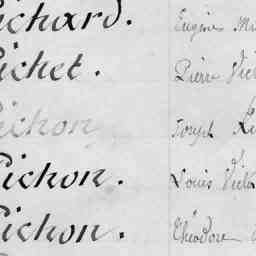 ichard. Eugène
ichet. Pierre Vic
ichon Joseph
ichon. Louis Vict
ichon. Théodore